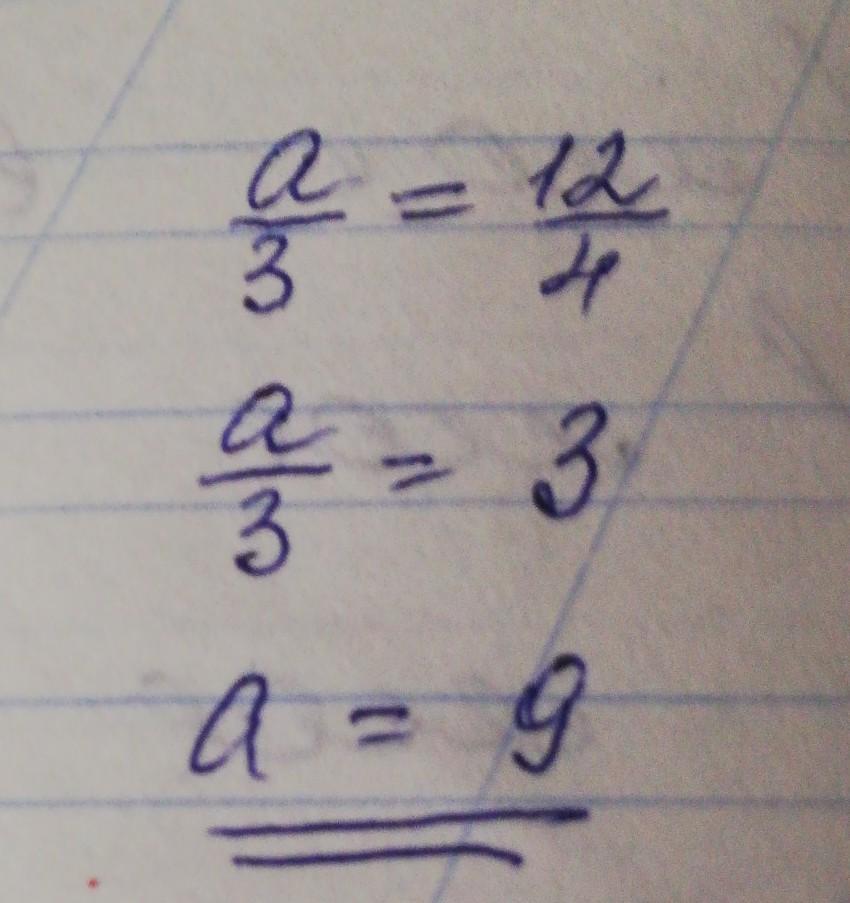 a/3 = 12/4
a/3 = 3
a = 9